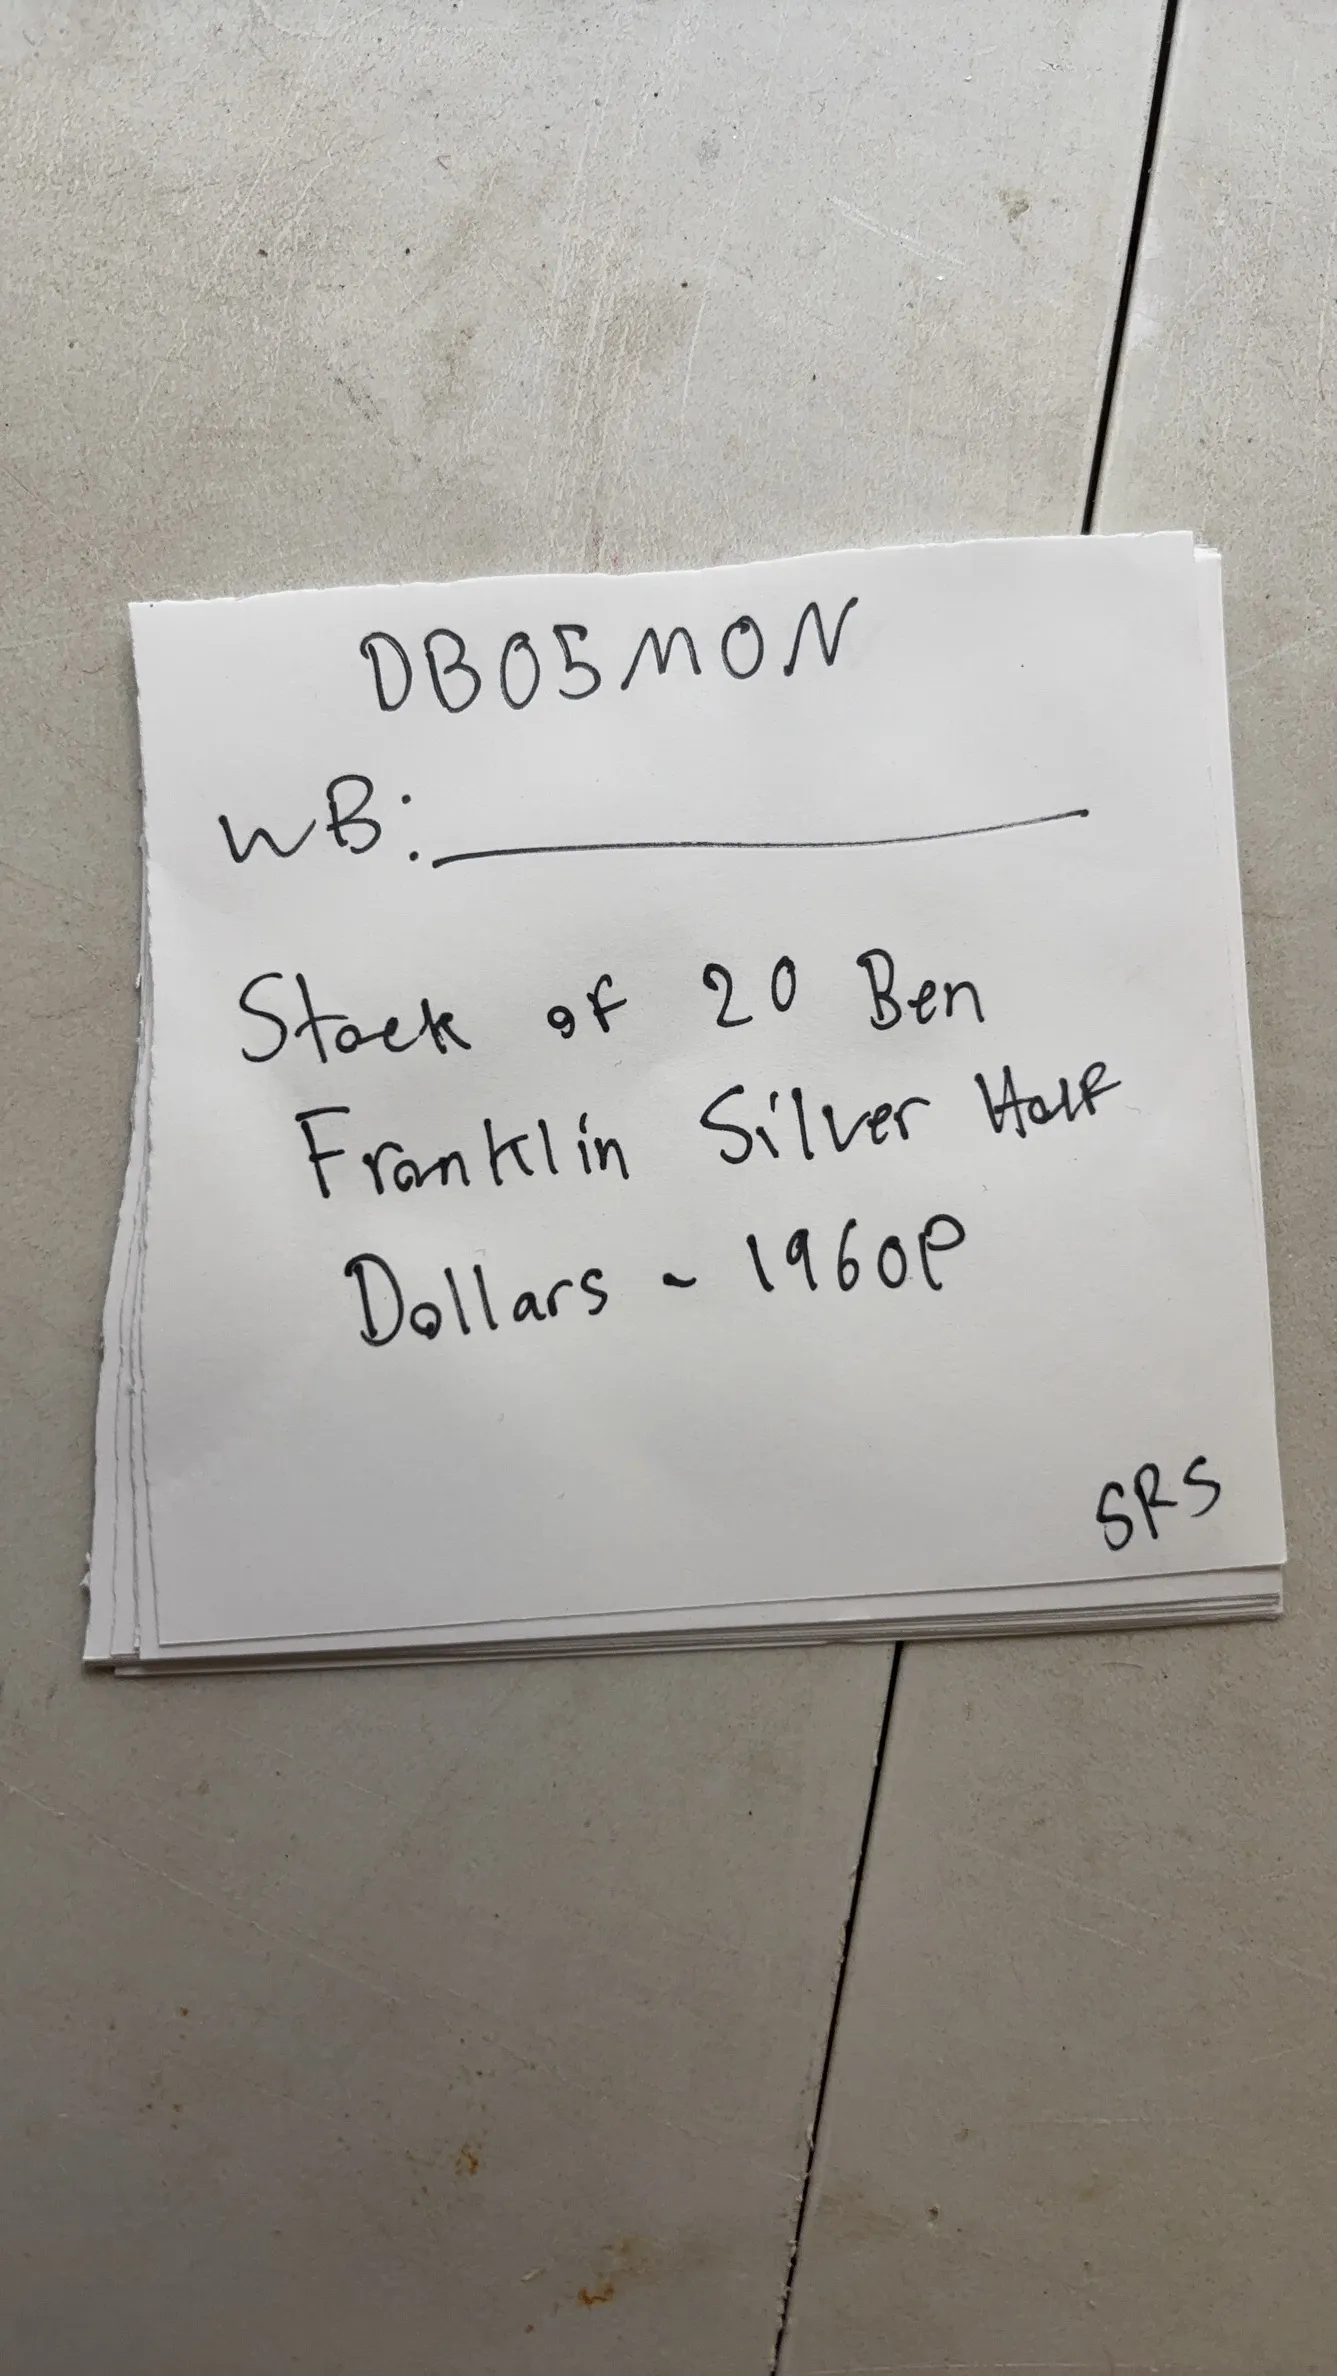 DB05MON
WB: ____________
Stack of 20 Ben
Franklin Silver Half
Dollars - 1960P
SRS